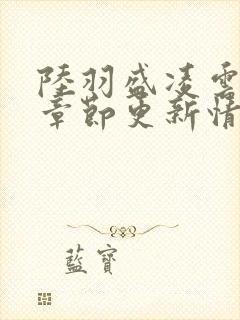 陸羽盛凌雲
章節更新情
藍寶